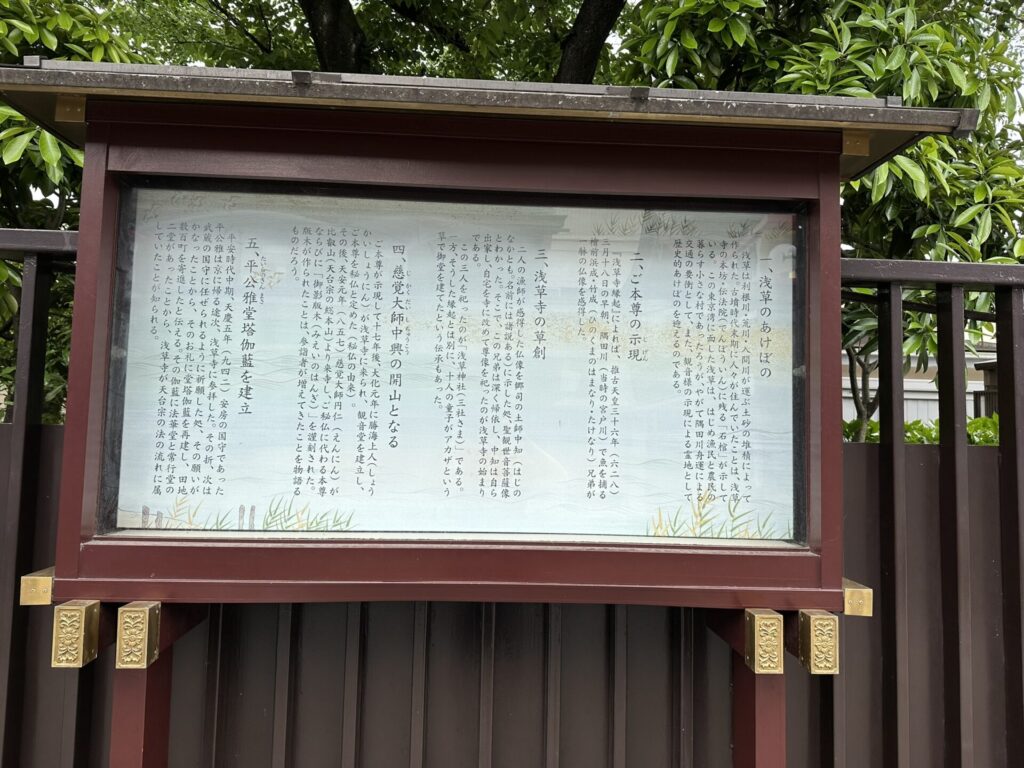 一、浅草のあけぼの
浅草は利根川・荒川・入間川が運ぶ土砂の堆積によって
作られた。古墳時代末期に人々が住んでいたことは、浅草
寺の本坊・伝法院(でんぼういん)に残る「石棺」が示して
いる。この東京湾に面した浅草は、はじめ漁民と農民の
暮らす小さな村であったろう。やがて隅田川舟運による
交通の要衝として、また、観音様の示現による霊地として
歴史的あけぼのを迎えるのである。
二、ご本尊の示現
じげん
『浅草寺縁起』によれば、推古天皇三十六年(六二八)
三月十八日の早朝、隅田川(当時の宮戸川)で魚を捕る
檜前浜成・竹成(ひのくまのはまなり・たけなり)兄弟が
一躰の仏像を感得した。
三、浅草寺の草創
二人の漁師が感得した仏像を郷司の土師中知(はじの
なかとも。名前には諸説ある)に示した処、聖観世音菩薩像
とわかった。そこで、この兄弟は深く帰依し、中知は自ら
出家し、自宅を寺に改めて尊像を祀ったのが浅草寺の始まり
である。
この三人を祀ったのが浅草神社(三社さま)である。
一方、そうした縁起とは別に、十人の童子がアカザという
草で御堂を建てたという伝承もあった。
四、慈覚大師中興の開山となる
じかくだいしちゅうこう
ご本尊が示現して十七年後、大化元年に勝海上人(しょう
かいしょうにん)が浅草寺に来られ、観音堂を建立し、
ご本尊を秘仏と定めた(秘仏の由来)。
その後、天安元年(八五七)慈覚大師円仁(えんにん)が
比叡山(天台宗の総本山)より来寺し、ご秘仏に代わる本尊
ならびに「御影版木(みえいのはんぎ)」を謹刻された。
版木が作られたことは、参詣者が増えてきたことを物語る
ものだろう。
五、平公雅堂塔伽藍を建立
平安時代中期、天慶五年(九四二)安房の国守であった
平公雅は京に帰る途次、浅草寺に参拝した。その折、次は
武蔵の国守に任ぜられるように祈願した処、その願いが
かなったことから、そのお礼に堂塔伽藍を再建し、田地
数百町を寄進したと伝える。その伽藍に法華堂と常行堂の
二堂があったことから、浅草寺が天台宗の法の流れに属
していたことが知られる。